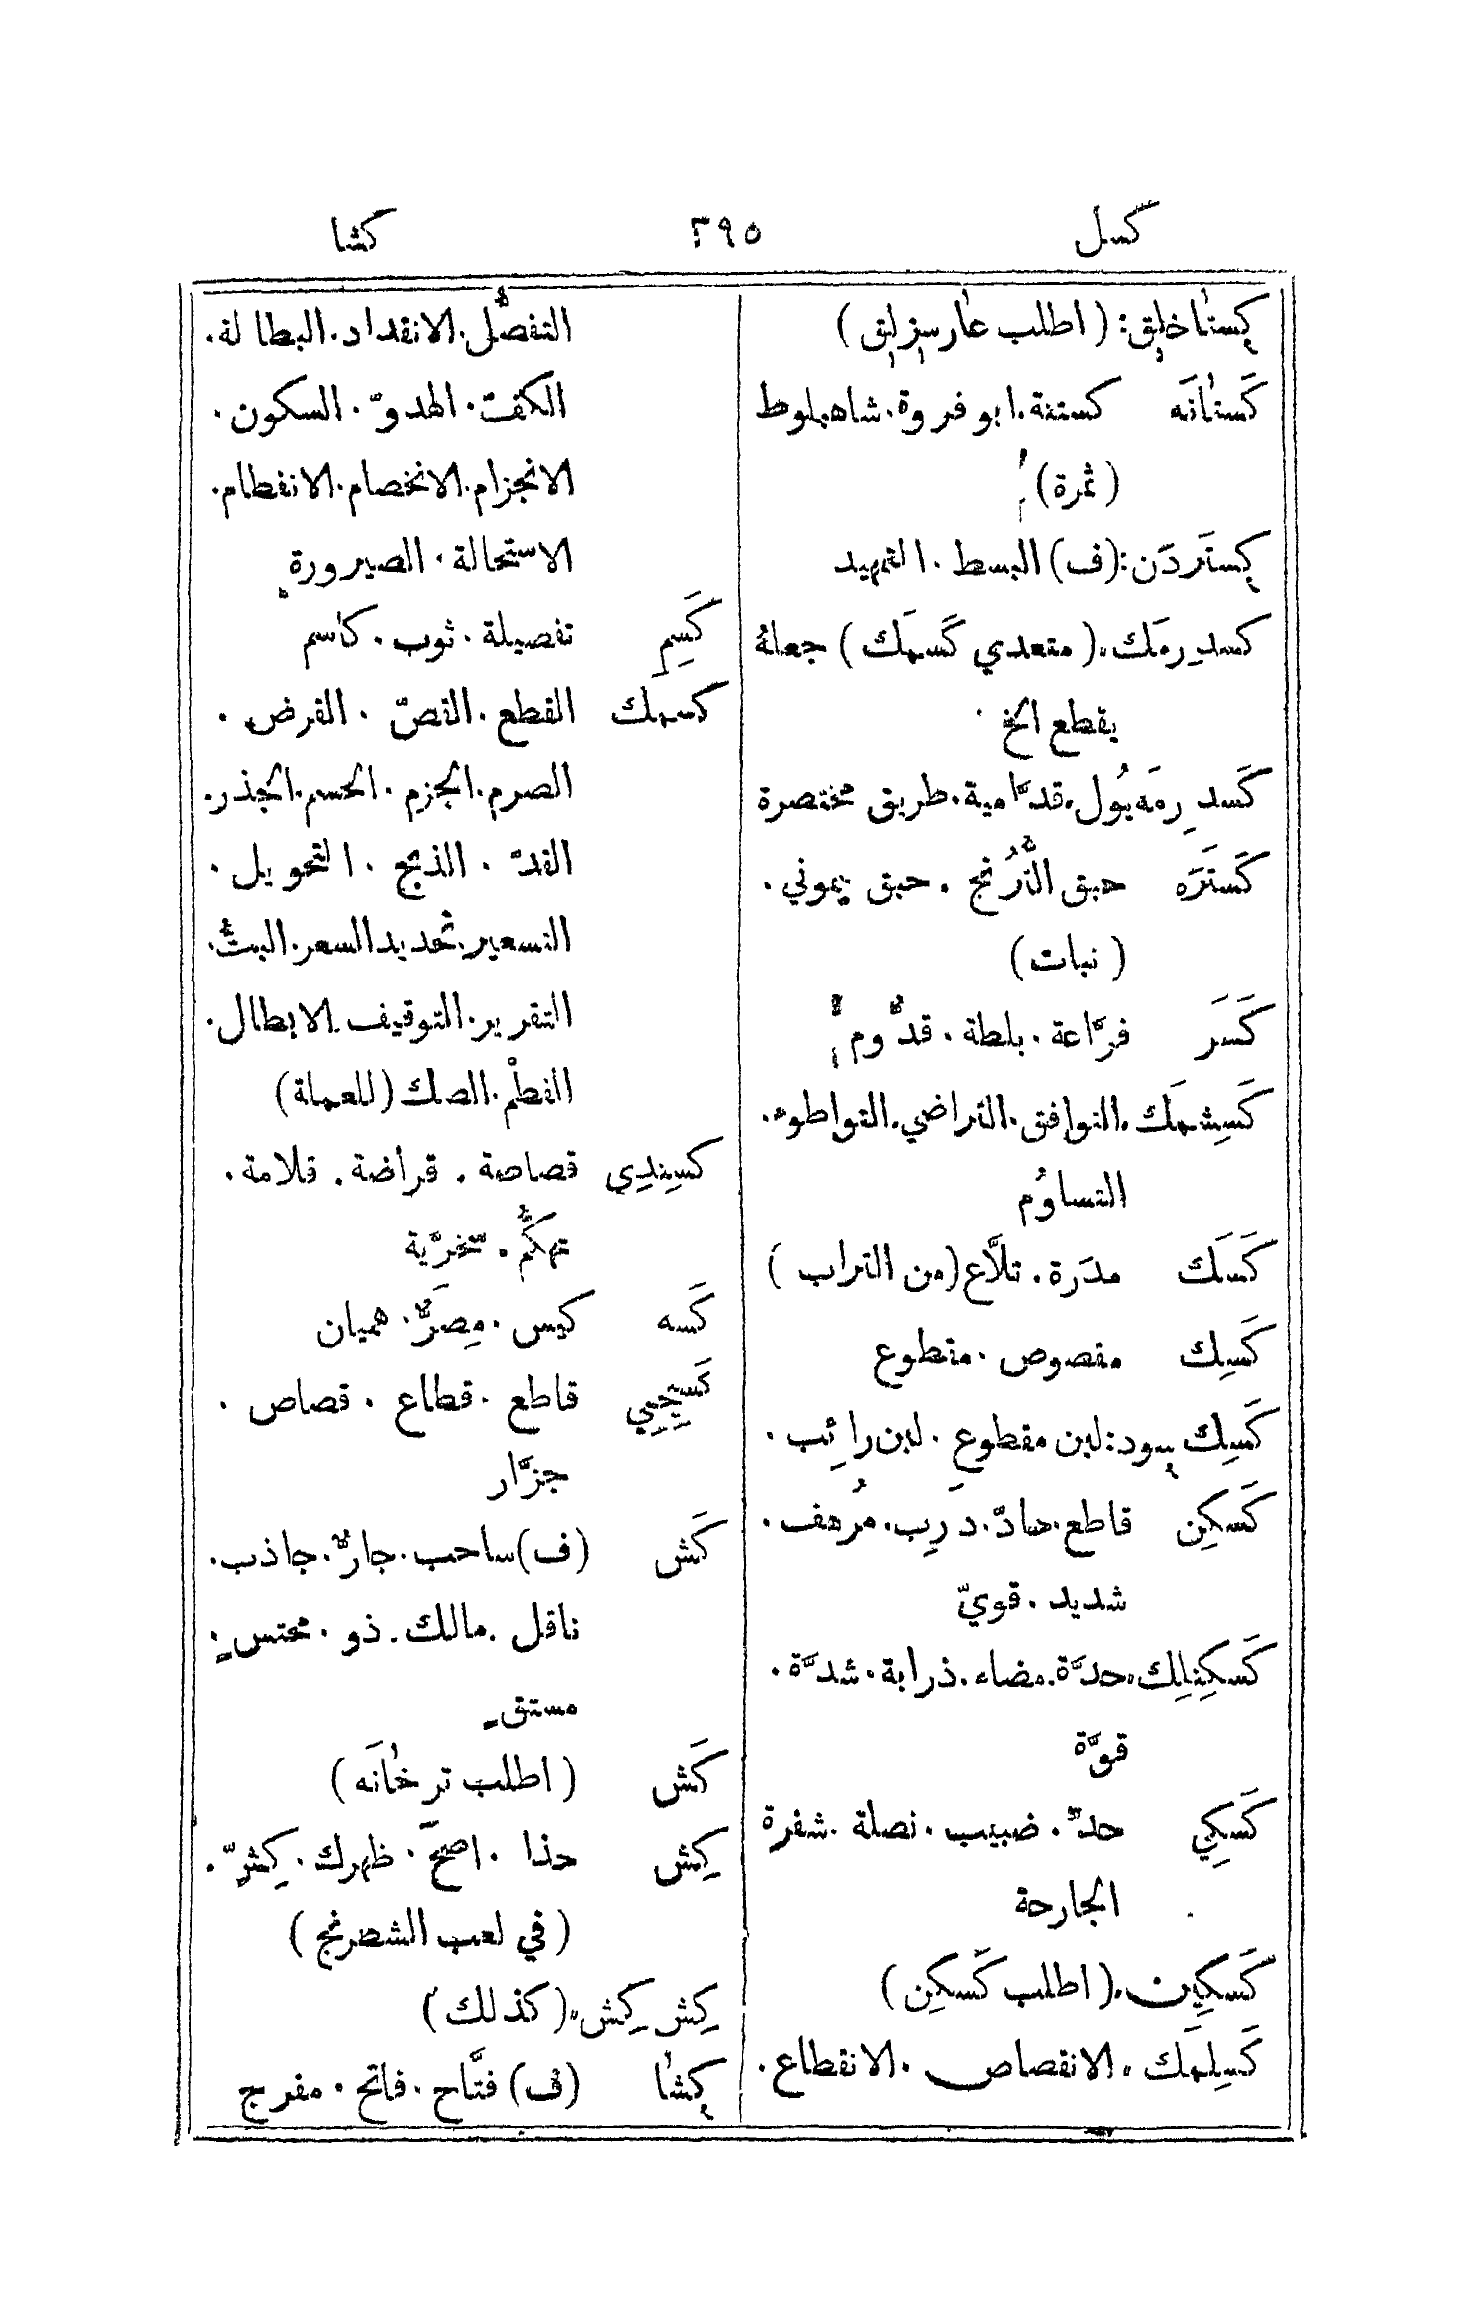 كسل ٣٩٥ كشا
كِستٰاخلِق: ( اطلب عٰارسِزلِق )
كَستٰانَه كستنة. ابو فروة. شاهبلوط
( ثمرة )
كِستَردَن: (ف) البسط . التمهيد
كسدِرمَك. ( متعدي كَسمَك ) جعلهُ
يقطع الخ
كَسدِرمَه يُول. قدَّامية. طريق مختصرة
كَستَرَه حبق التُّرُنج . حبق يموني .
( نبات )
كَسَر فرَّاعة . بلطة . قدُّوم
كَسِشمَك. التوافق. التراضي. التواطوء.
التساوُم
كَسَك مدَرة . تلَّاع (من التراب )
كَسِك مقصوص . مقطوع
كَسِك سود: لبن مقطوع . لبن رائِب .
كَسكِن قاطع. حادّ. درِب. مُرهف .
شديد . قويّ
كَسكِنلِك. حدَّة. مضاء. ذرابة. شدَّة .
قوَّة
كَسكِي حدّ . ضبيب . نصلة . شفرة
الجارحة
كَسكِين. ( اطلب كَسكِن )
كَسِلمَك . الانقصاص . الانقطاع .
التفصُّل. الانقداد. البطالة.
الكفت . الهدوّ . السكون .
الانجزام. الانخصام. الانفطام.
الاستحالة . الصيرورة
كَسِم تفصيلة . ثوب . كاسم
كسمك القطع . القصّ . القرض .
الصرم. الجزم . الحسم. الجذر.
القدّ . الذبح . التحويل .
التسعير. تحديد السعر. البتُّ.
التقرير. التوقيف. الابطال.
القطْم. الصك (للعملة)
كسِندِي قصاصة . قراضة . قلامة .
تهكُّم . سخريّة
كَسه كيس . مِصَرّ . هميان
كَسِيجِي قاطع . قطاع . قصاص .
جزَّار
كَش (ف) ساحب. جارّ. جاذب.
ناقل . مالك . ذو . محتسٍ .
مستقٍ
كَش ( اطلب ترخٰانَه )
كِش حذا . اصحَ . ظهرك . كِشّ .
( في لعب الشطرنج )
كِش كِش. ( كذلك )
كِشٰا (ف) فتَّاح . فاتح . مفرج